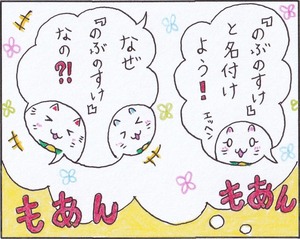 『のぶのすけ』
と名付け
よう！
エッヘン
なぜ
『のぶのすけ』
なの?!
もあん
もあん